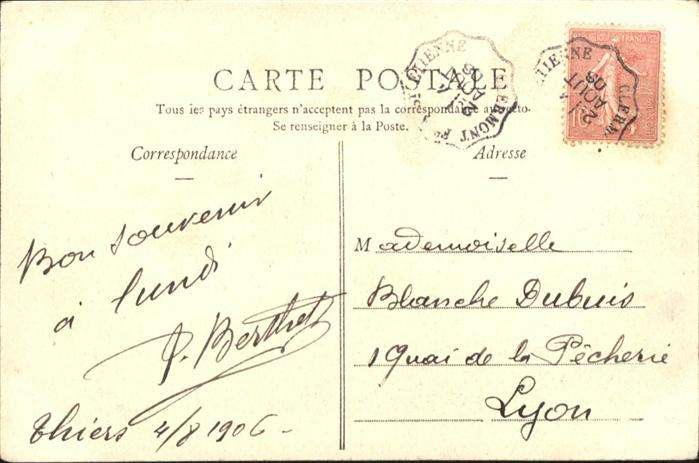 CARTE POSTALE
Tous les pays étrangers n'acceptent pas la correspondance au recto.
Se renseigner à la Poste.
Correspondance
Adresse
Bon souvenir
à lundi
P. Berthet
Thiers 4/8 1906 -
Mademoiselle
Blanche Dubuis
1 Quai de la Pêcherie
Lyon
ST ETIENNE
CLERMONT F
AOUT